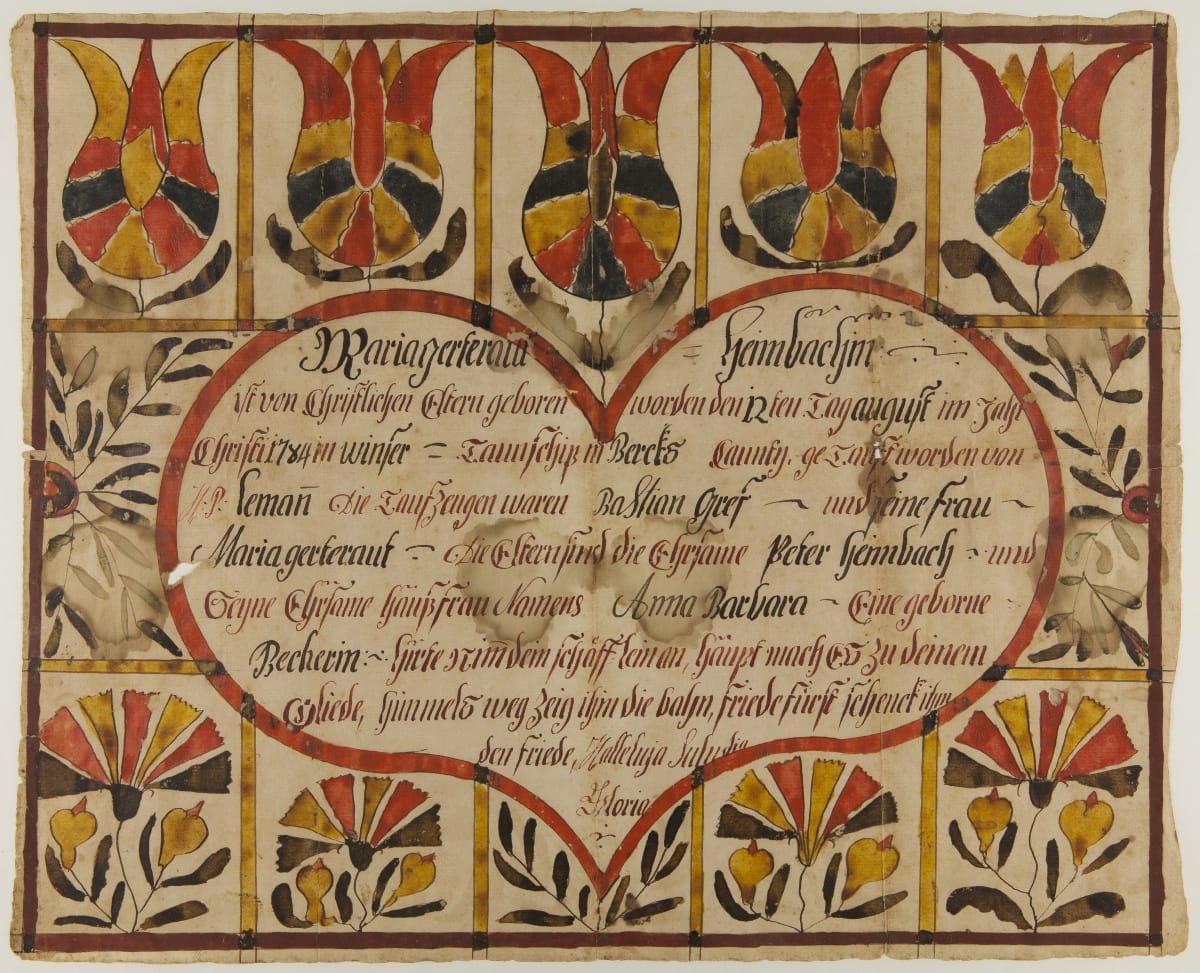 Mariagerteraut = Heimbachin
ist von Christlichen Eltern geboren worden den 12ten Tag august im Jahr
Christi 1784 in winser = Taunschip in Bercks Caunty. getauft worden von
H: P: lemañ Die Taufzeugen waren BaStian Gref ~ und seine frau ~
Maria gerteraut = Die Eltern sind die Ehrsame Peter heimbach ~ und
Seyne Ehrsame haüßfrau Namens Anna Barbara ~ Eine geborne ~
Becherin ~ hirte nim dein schäfflein an, haüpt mach Es zu deinem
Gliede, himmels weg zeig ihm die bahn, friede fürst schenck ihm
den friede, Halleluja
Gloria